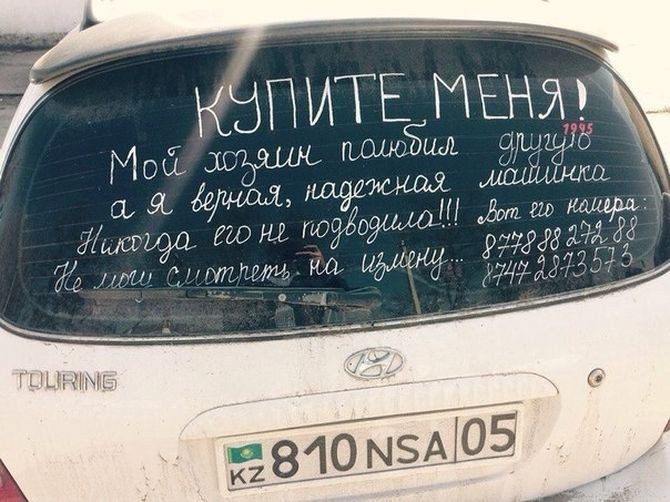 КУПИТЕ МЕНЯ!
Мой хозяин полюбил другую
1995
а я верная, надежная машинка
Никогда его не подводила!!! Вот его номера:
Не могу смотреть на измену... 87788827288
87472873573
TOURING
KZ 810 NSA 05